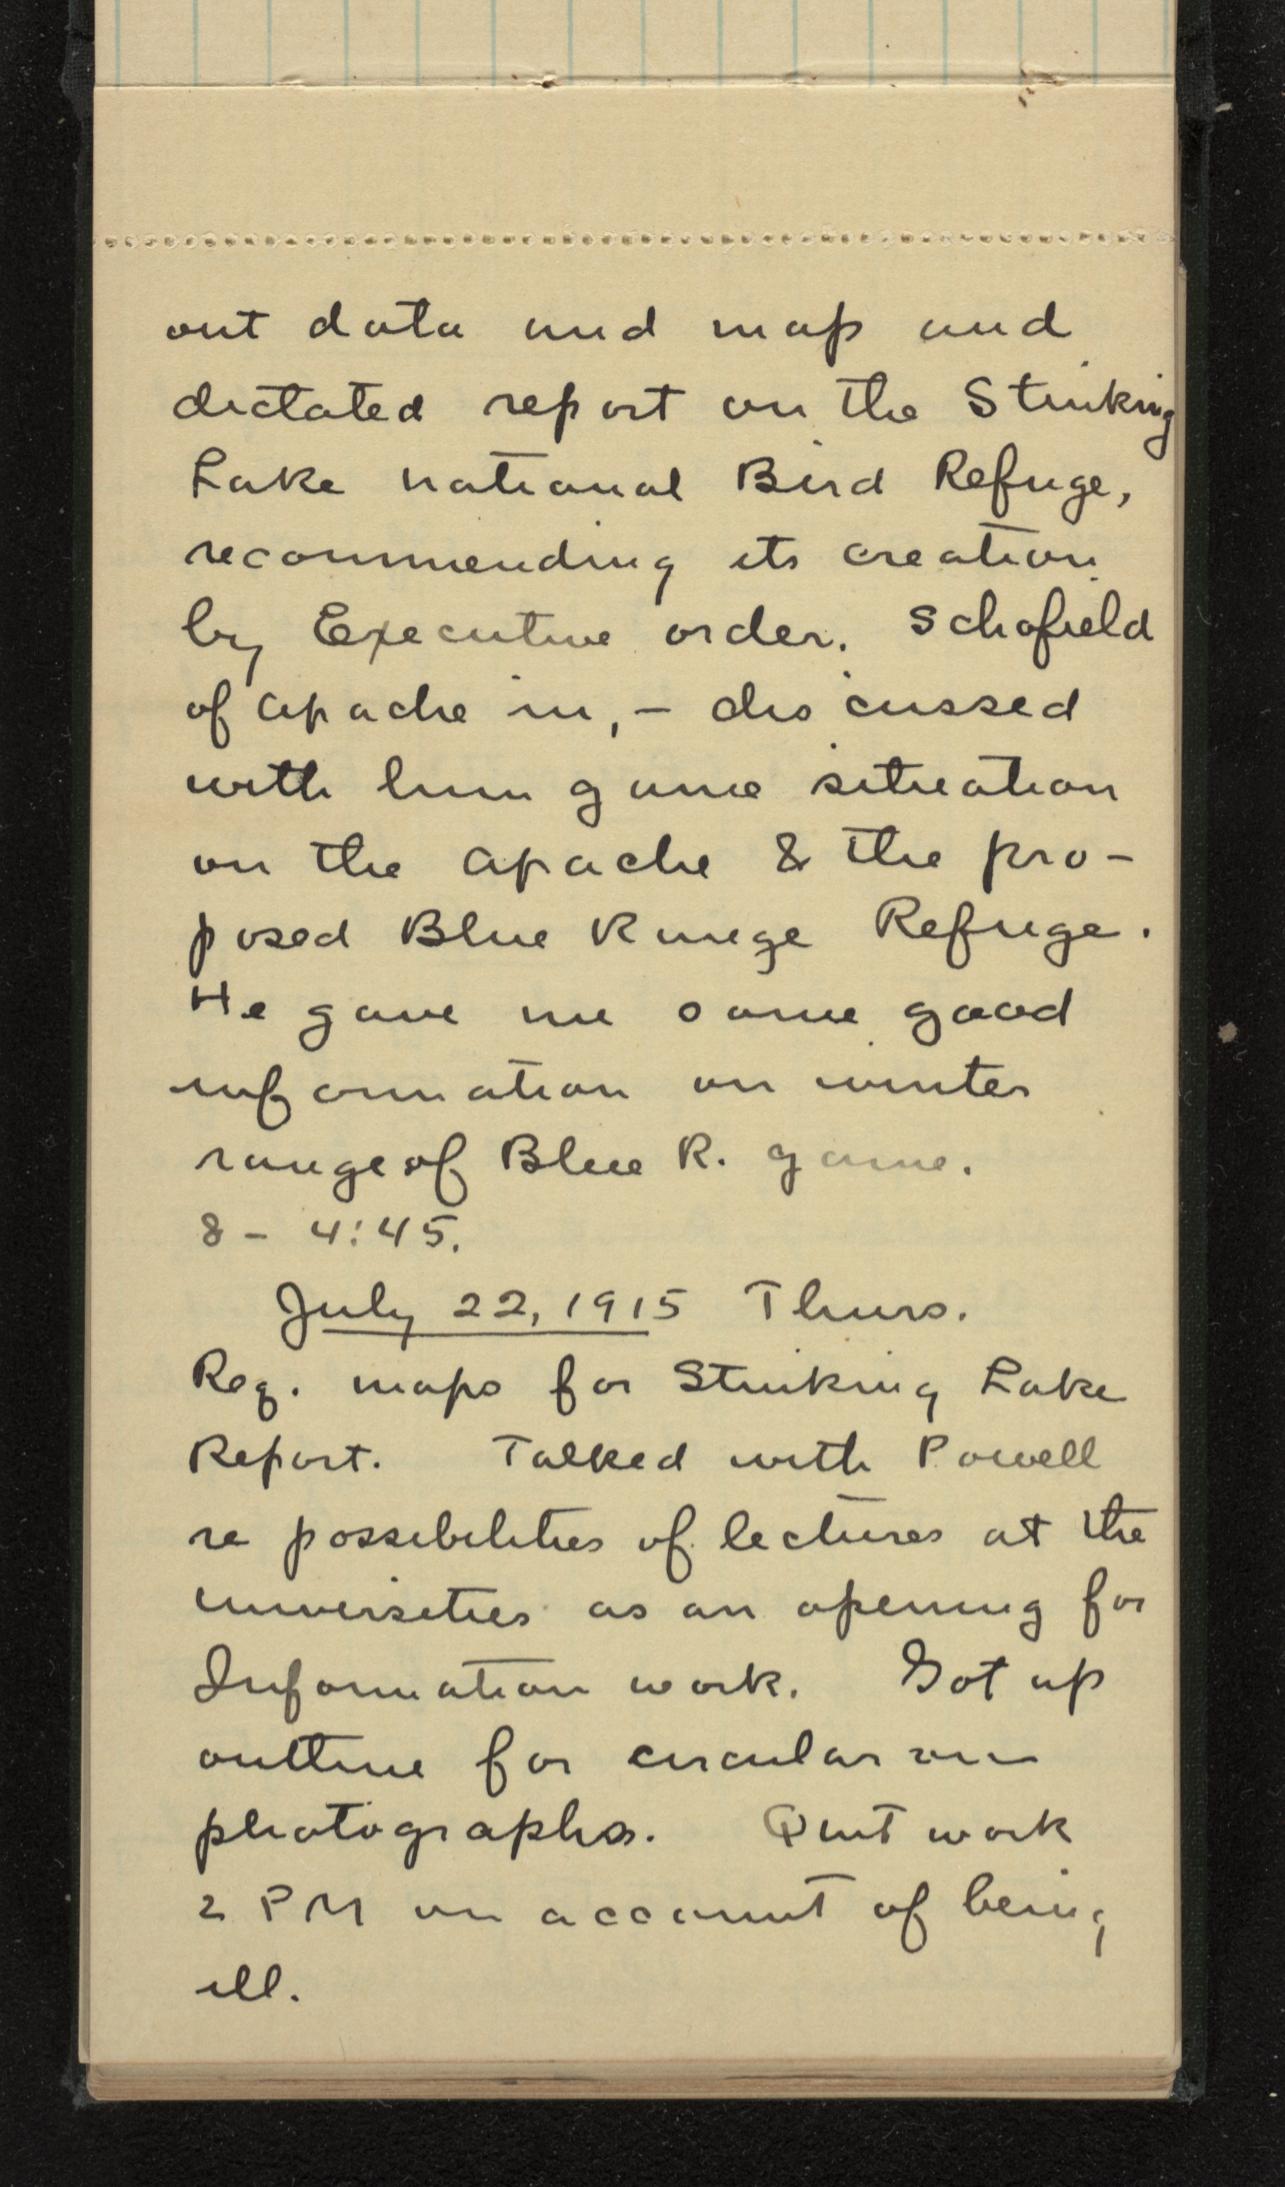 out data and map and
dictated report on the Stinking
Lake national Bird Refuge,
recommending its creation
by Executive order. Schofield
of Apache in, - discussed
with him game situation
on the Apache & the pro-
posed Blue Range Refuge.
He gave me some good
information on winter
range of Blue R. game.
8 - 4:45.
July 22, 1915 Thurs.
Req. maps for Stinking Lake
Report. Talked with Powell
re possibilities of lectures at the
universities as an opening for
Information work. Got up
outline for circular on
photographs. Quit work
2 PM on account of being
ill.